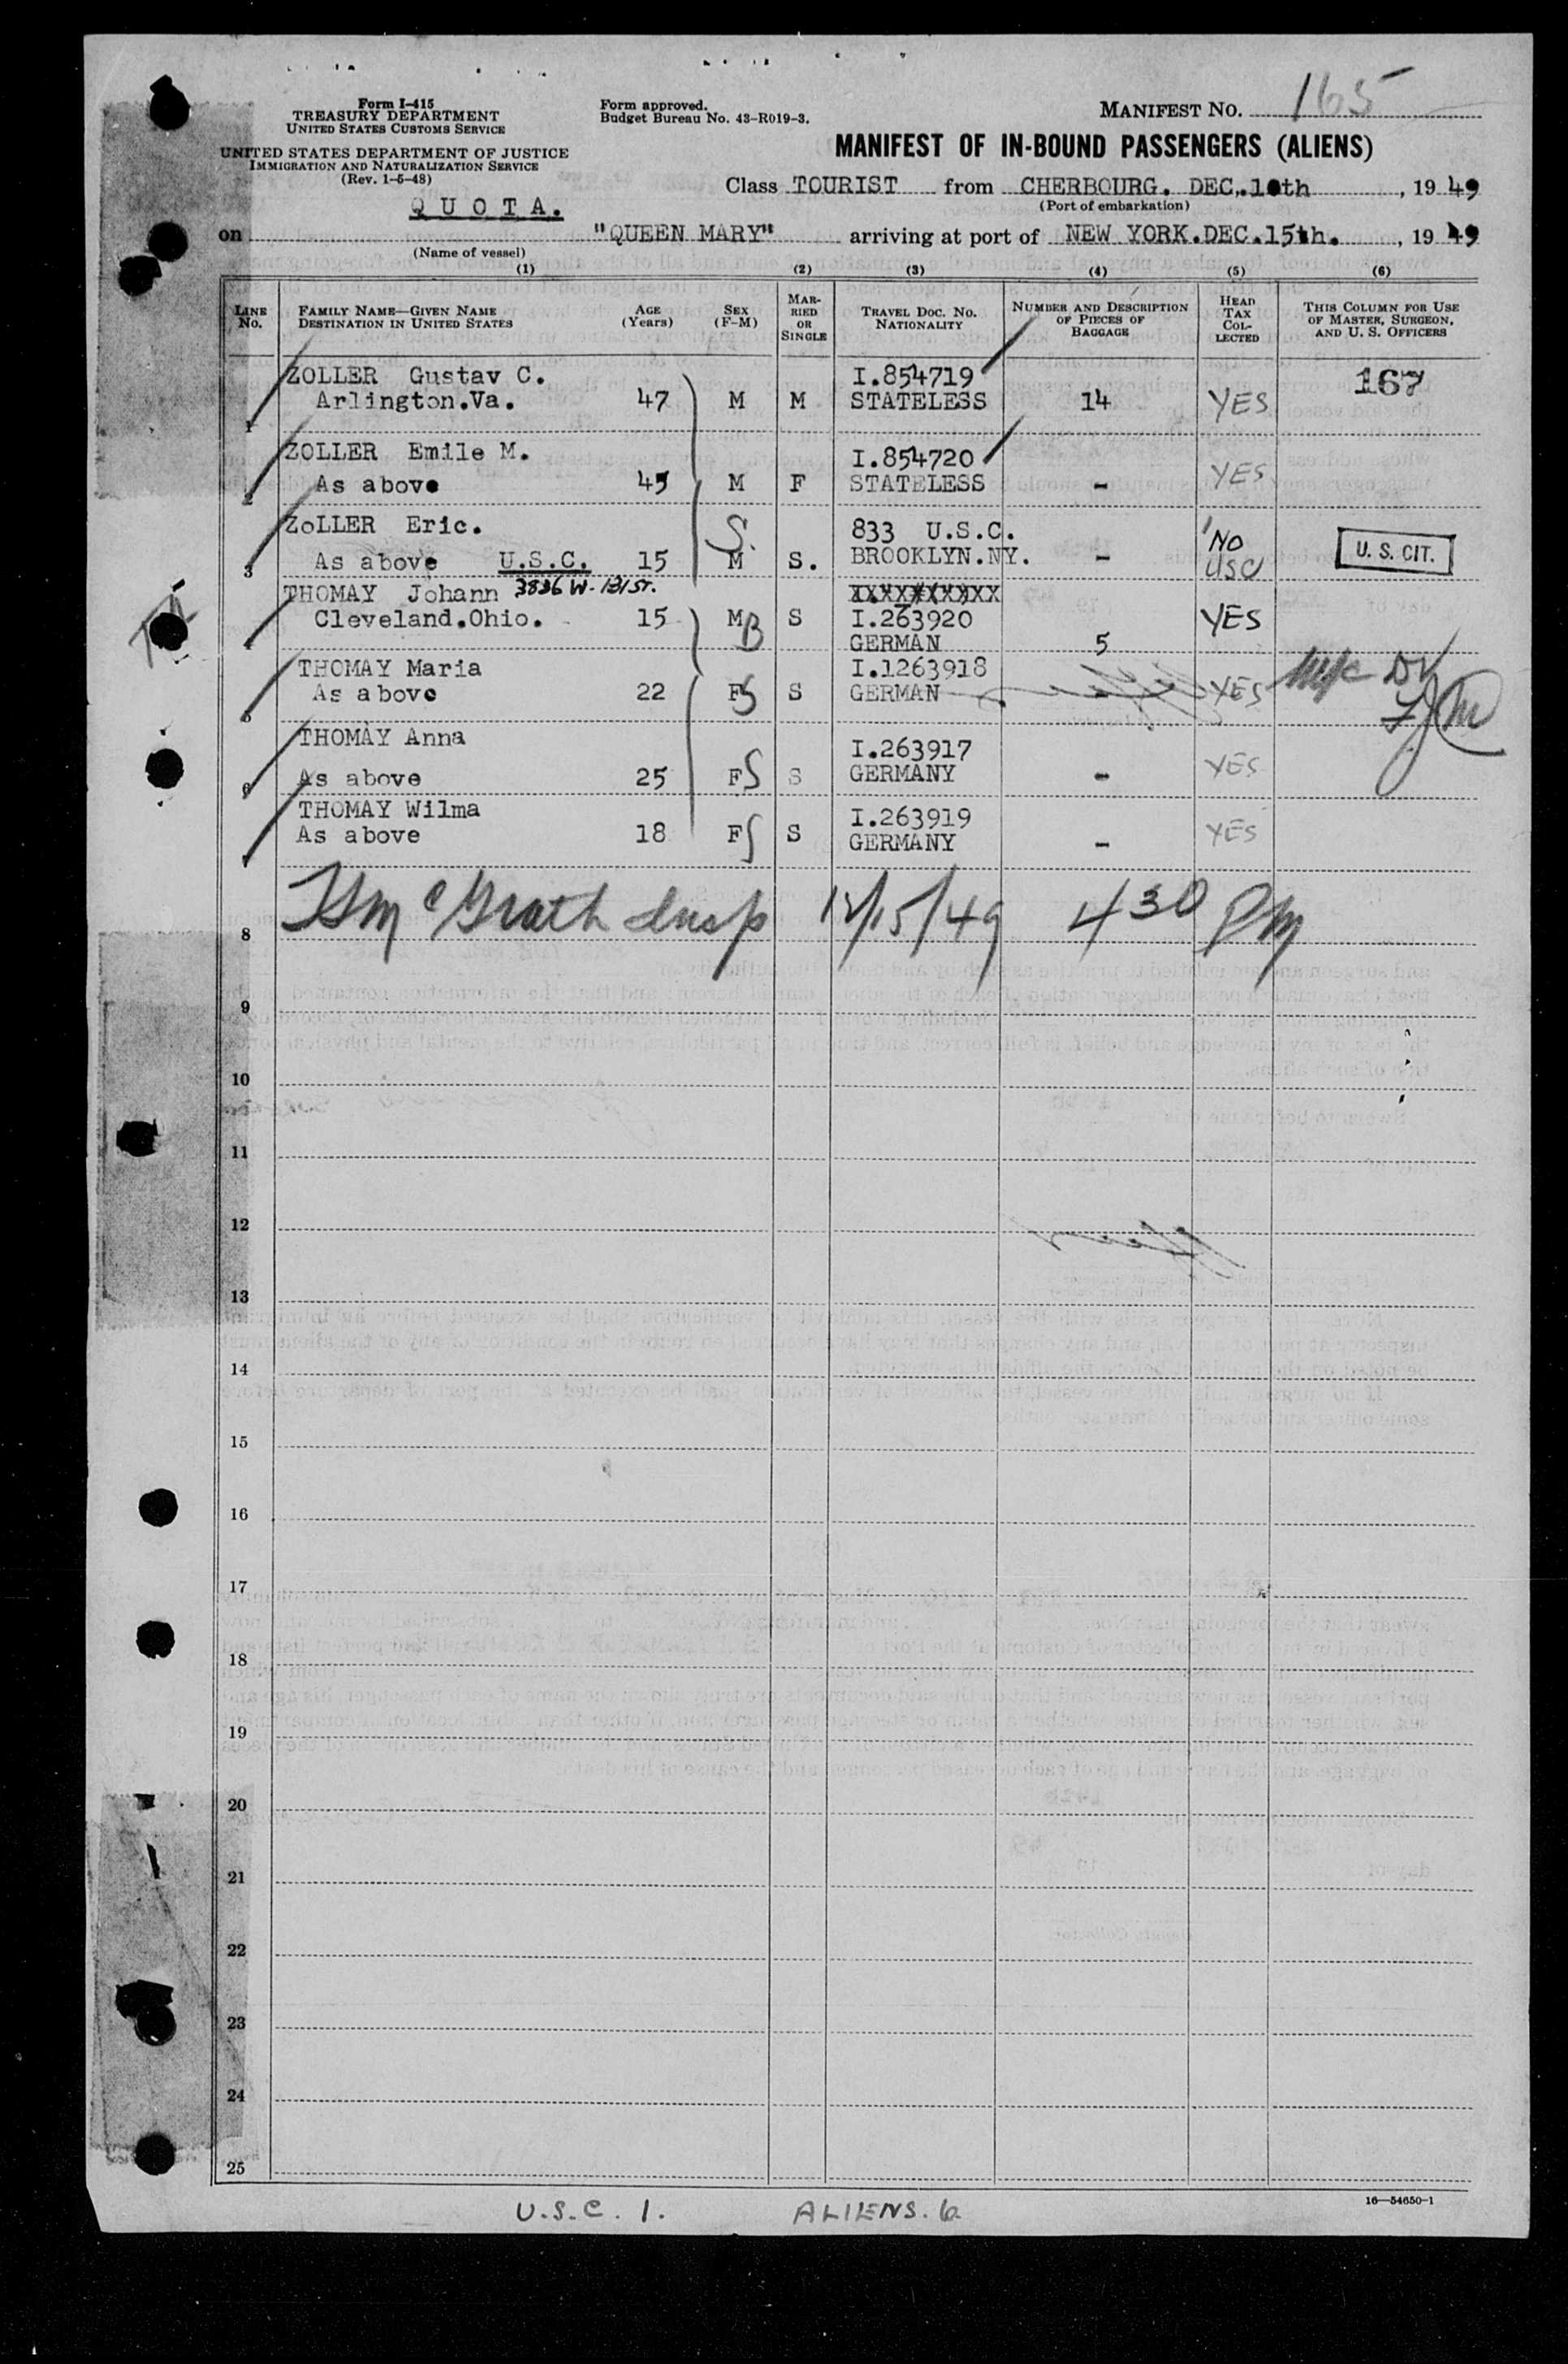 Form I-415
TREASURY DEPARTMENT
UNITED STATES CUSTOMS SERVICE
UNITED STATES DEPARTMENT OF JUSTICE
IMMIGRATION AND NATURALIZATION SERVICE
(Rev. 1-5-48)
Form approved.
Budget Bureau No. 43-R019-3.
MANIFEST NO. 165
MANIFEST OF IN-BOUND PASSENGERS (ALIENS)
Class TOURIST from CHERBOURG. DEC. 10th, 1949
(Port of embarkation)
QUOTA.
on "QUEEN MARY" arriving at port of NEW YORK.DEC.15th., 1949
(Name of vessel)
(1) (2) (3) (4) (5) (6)
LINE No. FAMILY NAME—GIVEN NAME DESTINATION IN UNITED STATES AGE (Years) SEX (F-M) MARRIED OR SINGLE TRAVEL DOC. NO. NATIONALITY NUMBER AND DESCRIPTION OF PIECES OF BAGGAGE HEAD TAX COLLECTED THIS COLUMN FOR USE OF MASTER, SURGEON, AND U. S. OFFICERS
ZOLLER Gustav C. I.854719 167
1 Arlington.Va. 47 M M STATELESS 14 YES
ZOLLER Emile M. I.854720
2 As above 45 M F STATELESS - YES
ZoLLER Eric. S. 833 U.S.C. NO
3 As above U.S.C. 15 M S. BROOKLYN.NY. - USC U. S. CIT.
THOMAY Johann 3836 W. 131 ST. XXXXXXXXXX
4 Cleveland.Ohio. 15 M B S I.263920 YES
GERMAN 5
THOMAY Maria I.1263918
5 As above 22 F S S GERMAN - YES
THOMAY Anna I.263917
6 As above 25 F S S GERMANY - YES
THOMAY Wilma I.263919
7 As above 18 F S S GERMANY - YES
8 McGrath Insp 12/15/49 430 PM
9
10
11
12
13
14
15
16
17
18
19
20
21
22
23
24
25
16—54650-1
U.S.C. 1. ALIENS. 6